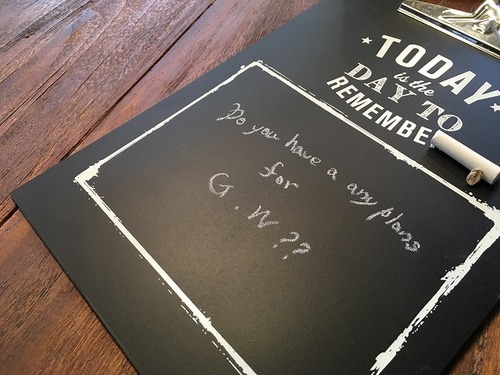 TODAY
is the
DAY TO
REMEMBE
Do you have a any plans
for
G.W??